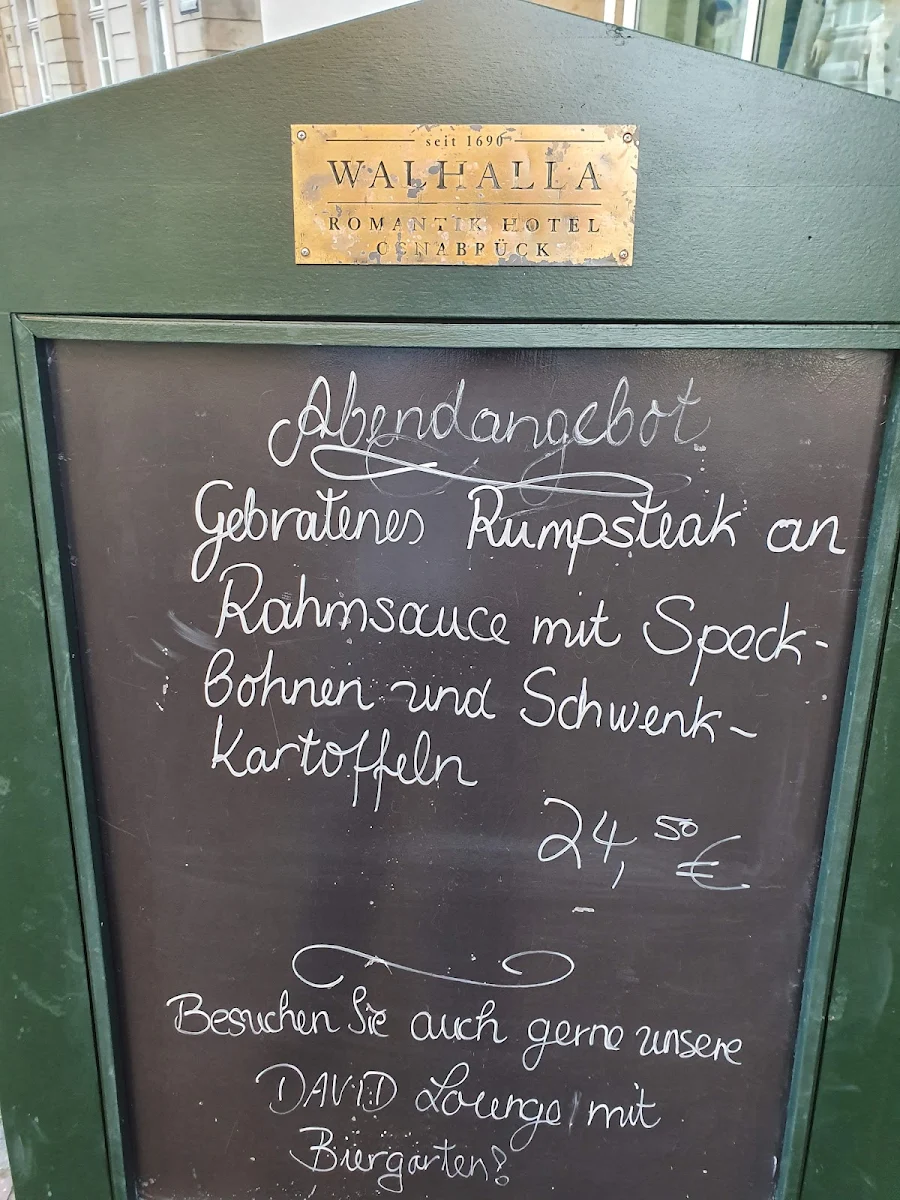 seit 1690
WALHALLA
ROMANTIK HOTEL
OSNABRÜCK
Abendangebot
Gebratenes Rumpsteak an
Rahmsauce mit Speck-
Bohnen und Schwenk-
Kartoffeln
24,50 €
Besuchen Sie auch gerne unsere
DAVID Lounge mit
Biergarten!